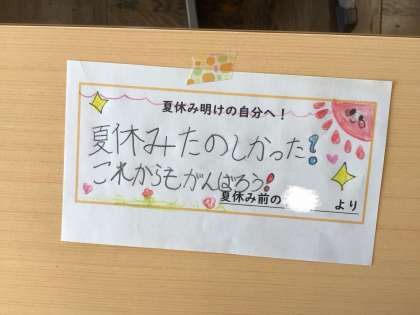 夏休み明けの自分へ!
夏休みたのしかった!
これからもがんばろう!
夏休み前の より